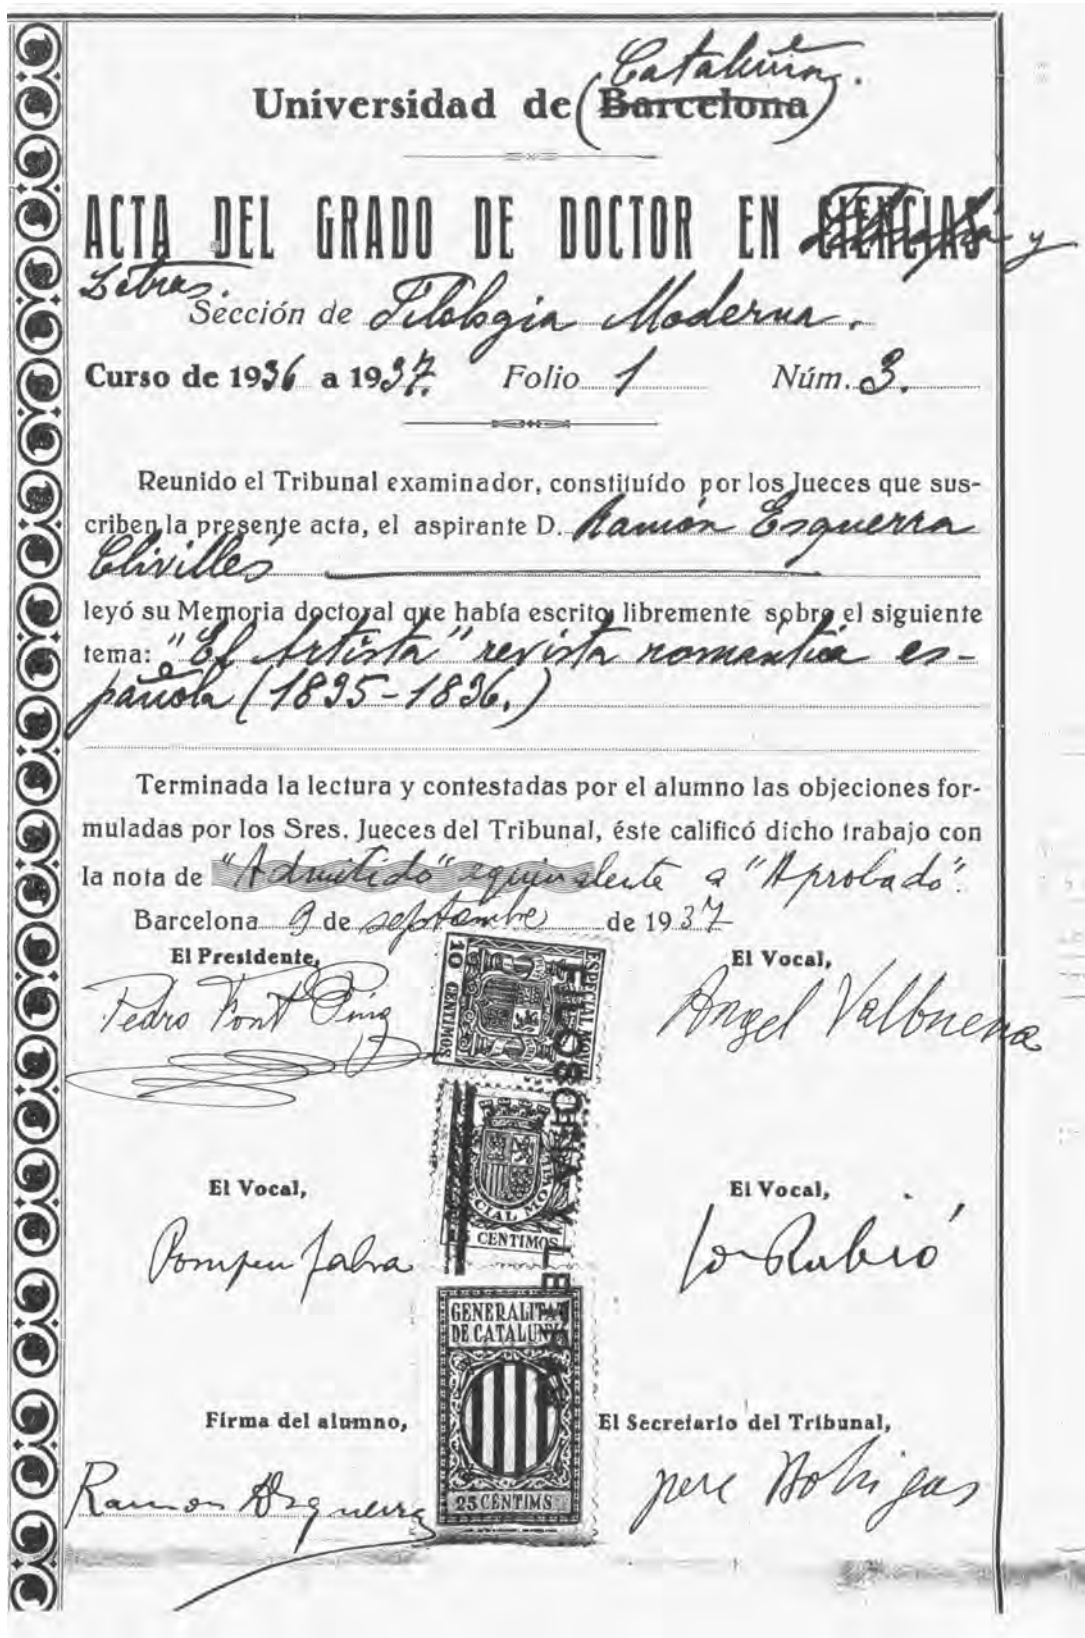 Cataluña.
Universidad de (Barcelona)
ACTA DEL GRADO DE DOCTOR EN CIENCIAS Filosofía y
Letras.
Sección de Filología Moderna.
Curso de 1936 a 1937. Folio 1 Núm. 3.
Reunido el Tribunal examinador, constituído por los Jueces que sus-
criben la presente acta, el aspirante D. Ramón Esquerra
Clivillés
leyó su Memoria doctoral que había escrito libremente sobre el siguiente
tema: "El Artista" revista romántica es-
pañola (1835-1836.)
Terminada la lectura y contestadas por el alumno las objeciones for-
muladas por los Sres. Jueces del Tribunal, éste calificó dicho trabajo con
la nota de "Admitido" equivalente a "Aprobado".
Barcelona 9 de septiembre de 1937
El Presidente, El Vocal,
Pedro Font Puig Angel Valbuena
10 CENTIMOS
ESPECIAL MOVIL
FILOSOFIA Y LETRAS
El Vocal, El Vocal,
ESPECIAL MOVIL
CENTIMOS
Pompeu Fabra Jo Rubió
GENERALITAT
DE CATALUNYA
Firma del alumno, El Secretario del Tribunal,
25 CENTIMS
Ramon Esquerra pere Bohigas